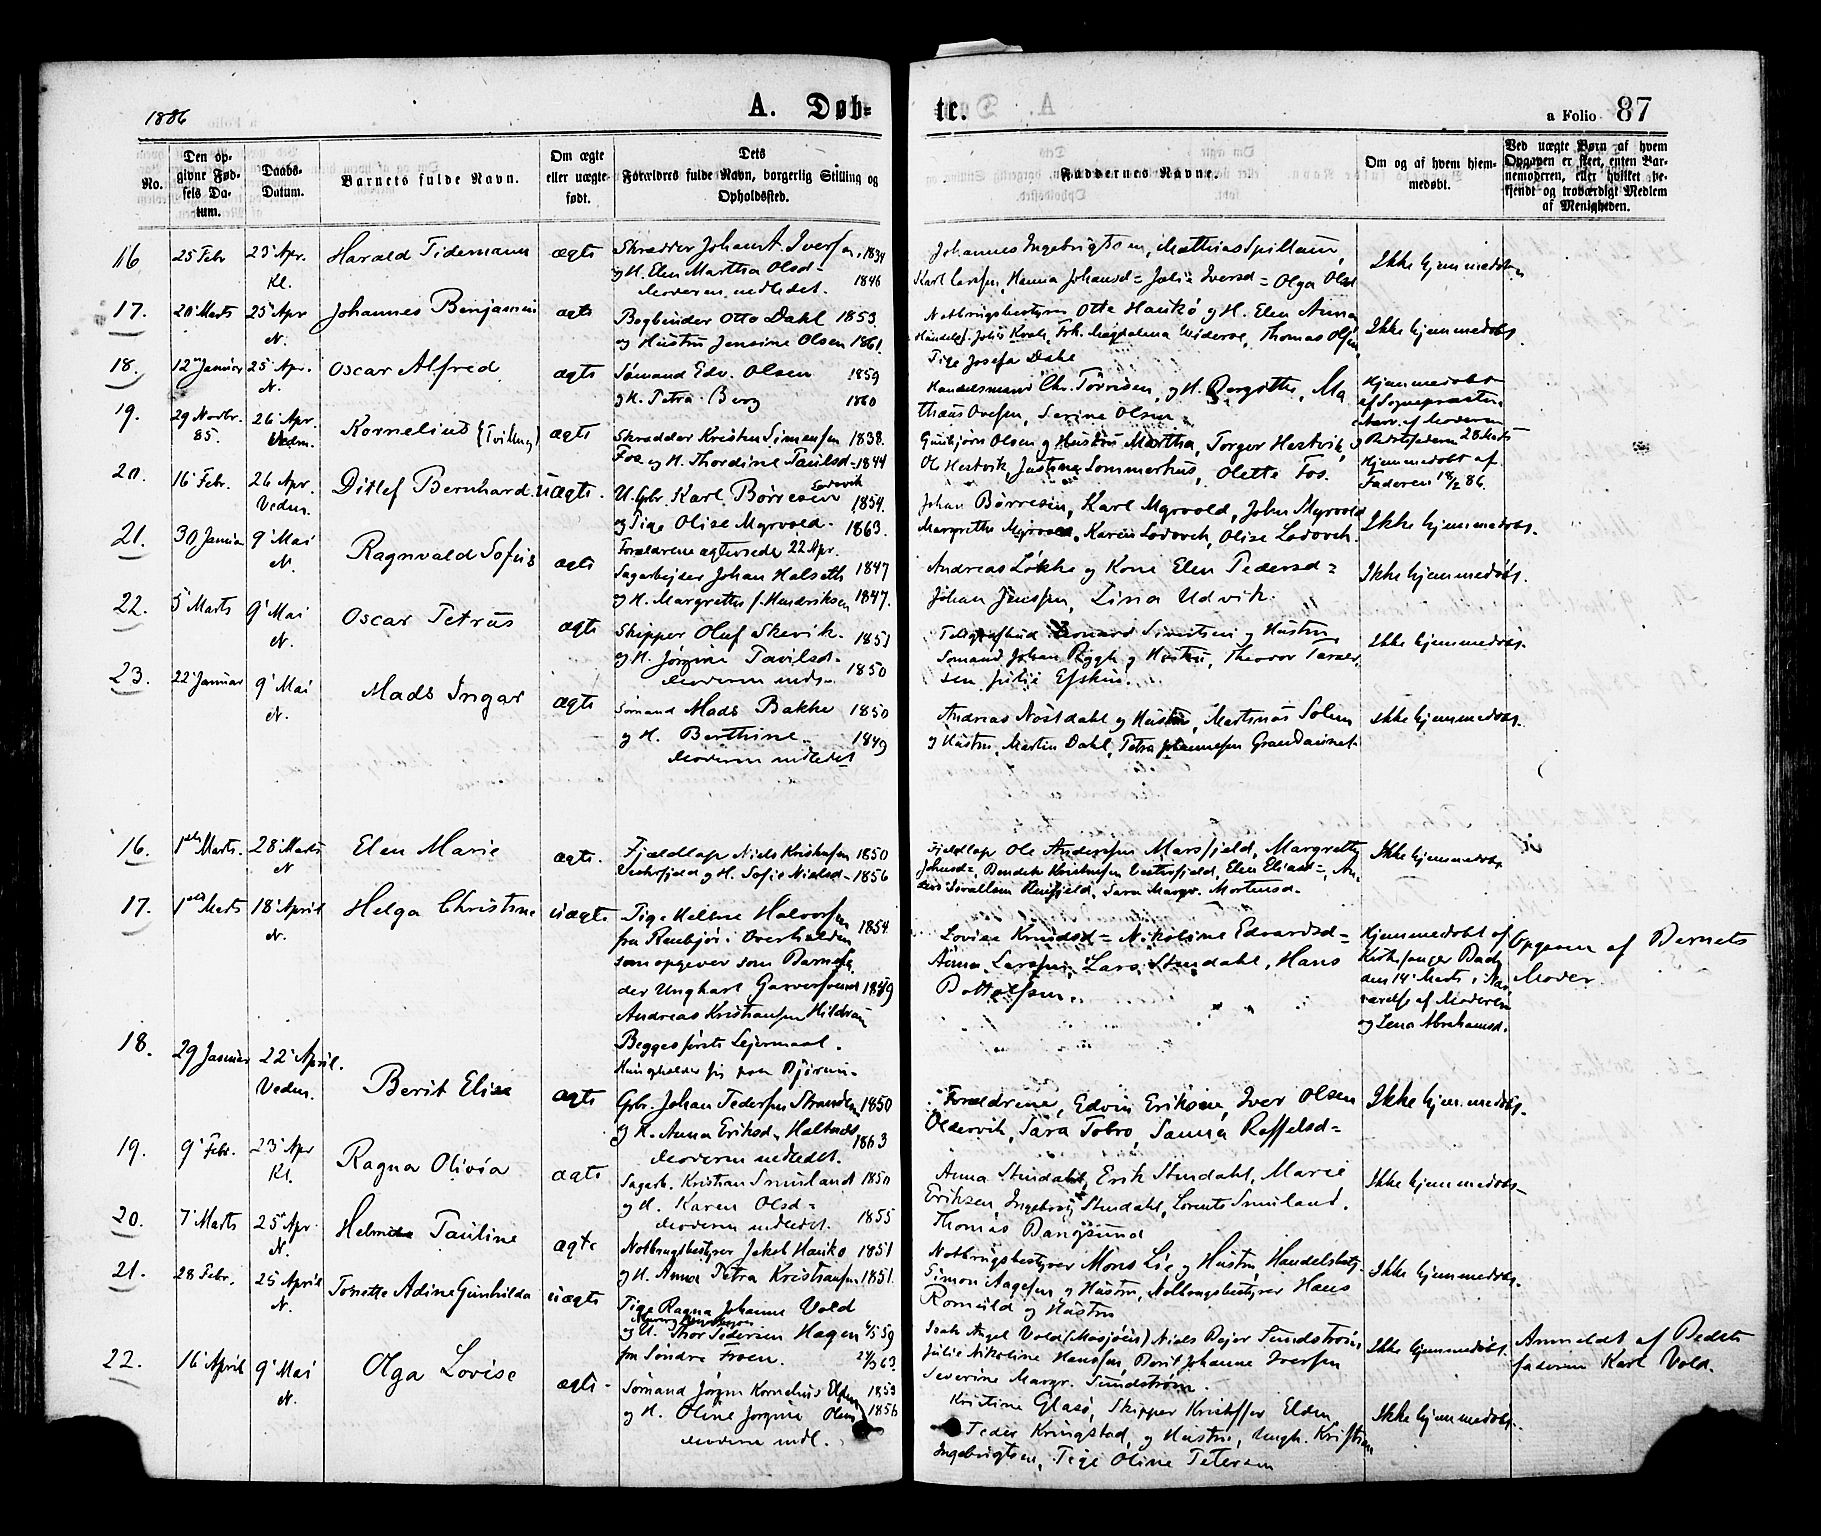 1886
A. Døb-
te.
a Folio 87
No.
Den op-
givne Fød-
sels Da-
tum.
Daabs-
Datum.
Barnets fulde Navn.
Om ægte
eller uægte
født.
Dets
Forældres fulde Navn, borgerlig Stilling og
Opholdssted.
Faddernes Navne.
Om og af hvem hjem-
medøbt.
Ved uægte Børn af hvem
Opgaven er skeet, enten Bar-
nemoderen, eller hvilket be-
kjendt og troværdigt Medlem
af Menigheden.
16 25 Febr 23 Apr. Kl. Harald Tidemann ægte
Skrædder Johan A. Iversen 1834
og H. Elen Martha Olsd= 1846
Moderen indledet.
Johannes Ingebrigtsen, Mathias Spillum,
Karl Larsen, Hanna Johansd= Iversd= Olga Olsd
Ikke hjemmedøbt
17. 20 Marts 25 Apr N. Johannes Benjamin ægte
Bogbinder Otto Dahl 1853
og Hustru Jensine Olsen 1861.
Notbrugsbestyrer Otte Haukø og H. Elen Anna
Magdalena Thomas Olsen,
Pige Josefa Dahl
Ikke hjemmedøbt.
18. 12 Januar 25 Apr. N. Oscar Alfred ægte
Sømand Edv. Olsen 1859
og H. Petra Berg 1860
Handelsmand Chr. og H. Ma
thæus Ovesen, Serine Olsen
Hjemmedøbt
af Sognepræsten
af Moderen
28 Marts
19. 29 Novbr. 85. 26 Apr. Vedm. Kornelius (Tvilling) ægte
Skrædder Kristen Simensen 1838.
Fos og H. Thordine Paulsd= 1844
Gunbjørn Olsen og Hustru Martha, Torger Hestvik,
Ole Hestvik, Justina Sommerhus, Olette Fos.
Hjemmedøbt af
Faderen 18/2 86.
20. 16 Febr. 26 Apr. Vedm. Ditlef Bernhard uægte.
U. Gbr. Karl Lodovik Børresen 1854.
og Pige Olise Myrvold. 1863.
Forældrene ægteviede 22 Apr.
Johan Børresen, Karl Myrvold, John Myrvold
Margrethe Myrvold, Karen Lodovik, Olise Lodovik.
Ikke hjemmedøbt.
21. 30 Januar 9 Mai N. Ragnvald Sofus ægte
Sagarbejder Johan Halseth 1847
og H. Margrethe f. Hendriksen 1847.
Andreas Løkke og Kone Elen Pedersd=
Johan Jenssen, Lina Udvik.
Ikke hjemmedøbt.
22. 5 Marts 9 Mai N. Oscar Petrus ægte
Skipper Oluf Skevik. 1851
og H. Jørgine Paulsd. 1850
Moderen indl.
Leonard Sivertsen og Hustru,
Sømand Johan Rygh og Hustru, Theodor
sen Julie
Ikke hjemmedøbt.
23. 22 Januar 9 Mai N. Mads Ingar ægte
Sømand Mads Bakke 1850
og H. Berthine 1849
Moderen indledet
Andreas Nøstdahl og Hustru, Martinus Solum
og Hustru, Martin Dahl, Petra Johannesen Grandaunet.
Ikke hjemmedøbt.
16. 1 Marts. 28 Marts N Elen Marie ægte.
Fjældlap Niels Kristofersen 1850
og H. Sofie Nielsd. 1856
Fjeldlap Ole Anderssen Marsfjeld, Margrethe
Johnsd=, Bendik Kristofersen Vesterfjeld, Elen Eliasd=, An-
ders Sara Margr. Mortensd.
Ikke hjemmedøbt
17. 1 Marts 18 April N. Helga Christine uægte
Pige Halvorsen 1854
fra i Overhalden
som opgever som Barnefa
der Ungkarl Garversvend 1859
Andreas Kristiansen Hildrum
Begges første Lejermaal.
Lovise Knudsd= Nikoline Edvardsd=
Anna Larsen, Lars Stendahl, Hans
Bottolfsen.
Hjemmedøbt af
Kirkesanger Bach
den 14 Marts i Nær-
værelse af Moderen
og Lena Abrahamsd.
Opgaven af Barnets
Moder.
18. 29 Januar 22 April. Vedm. Berit Elise ægte
Gbr. Johan Pedersen 1850
og H. Anna Eriksd. 1863
Moderen indledet.
Forældrene, Edvin Eriksen, Iver Olsen
Oldervik, Sara Sanna Reffelsd=
Ikke hjemmedøbt.
19. 9 Febr. 23 Apr Kl. Ragna Olivia ægte
Sagarb. Kristian Sminland 1850
og H. Karen Olsd= 1855
Moderen indledet.
Anna Stendahl, Erik Stendahl, Marie
Eriksen, Ingebrig Stendahl, Lorents Smiland,
Thomas Bangsund
Ikke hjemmedøbt
20. 7 Marts 25 Apr. N. Helmine Pauline ægte
Notbrugsbestyrer Jakob Haukø 1851
og H. Anna Petra Kristiansen 1851.
Notbrugsbestyrer Mons Lie og Hustru, Handelsbetj.
Simon Aagesen og Hustru, Notbrugsbestyrer Hans
Romuld og Hustru
Ikke hjemmedøbt.
21. 28 Febr. 25 April N. Tonette Adine Gunhilda uægte
Pige Ragna Johanne Vold
og U. Thor Pedersen Hagen 6/5 59
fra Søndre Froen. 63
Isak Angel Vold (Mosjøen) Niels Bejer Sundstrøm,
Julie Nikoline Hanssen, Berit Johanne Iversen
Severine Margr. Sundstrøm.
Ikke hjemmedøbt.
Anmeldt af Bedste
faderen Karl Vold.
22. 16 April 9 Mai N. Olga Lovise ægte.
Sømand Jørgen Kornelius Elden 1853
og H. Oline Jorgine Olsen 1856
Moderen indl.
Kristine Glasø, Skipper Kristoffer Elden
Peder Kringstad, og Hustru, Ungk. Kristian
Ingebrigtsen, Pige Oline Petersen
Ikke hjemmedøbt.